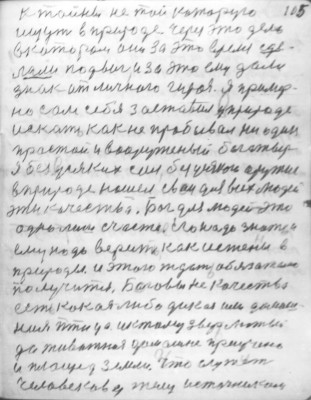 к тайны не той которую 105
ищут в природе через это дело
в котором они за это время сде-
лали подвиг и за это ему дали
знак отличного героя. Я прямо
но сам себя заставил в природе
искать, как не пробывал ни один
простой и вооруженый богатыр
я без всяких сил, без всякой оружие
в природе нашел свои для всех людей
эти качества. Бог для людей это
одно лишь счастье. Его надо знать и
ему надо верить как истене в
природе и этого ждать, обязательно
получится. Боговы не качества
есть какая либо дикая или домаш-
няя птица и к тому зверь
да животная домашне приучено
и площед земли. Что служит
человеков у жизни источником